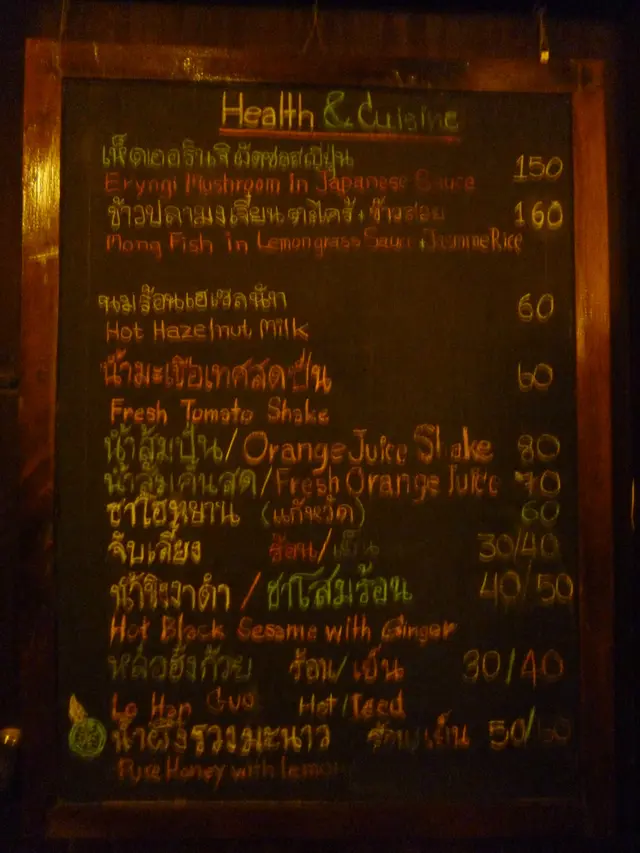 Health & Cuisine
เห็ดออรินจิผัดซอสญี่ปุ่น 150
Eryngi Mushroom In Japanese Sauce
ข้าวปลามงเจี๋ยนตะไคร้+ข้าวสวย 160
Mong Fish in Lemongrass Sauce + Jasmine Rice
นมร้อนเฮเซลนัท 60
Hot Hazelnut Milk
น้ำมะเขือเทศสดปั่น 60
Fresh Tomato Shake
น้ำส้มปั่น/Orange Juice Shake 80
น้ำส้มคั้นสด/Fresh Orange Juice 70
ชาไฮหยาน (แก้หวัด) 60
จับเลี้ยง ร้อน/เย็น 30/40
น้ำขิงงาดำ/ชาโสมร้อน 40/50
Hot Black Sesame with Ginger
หล่อฮั้งก๊วย ร้อน/เย็น 30/40
Lo Han Guo Hot/Iced
น้ำผึ้งรวงมะนาว ร้อน/เย็น 50/60
Pure Honey with lemon